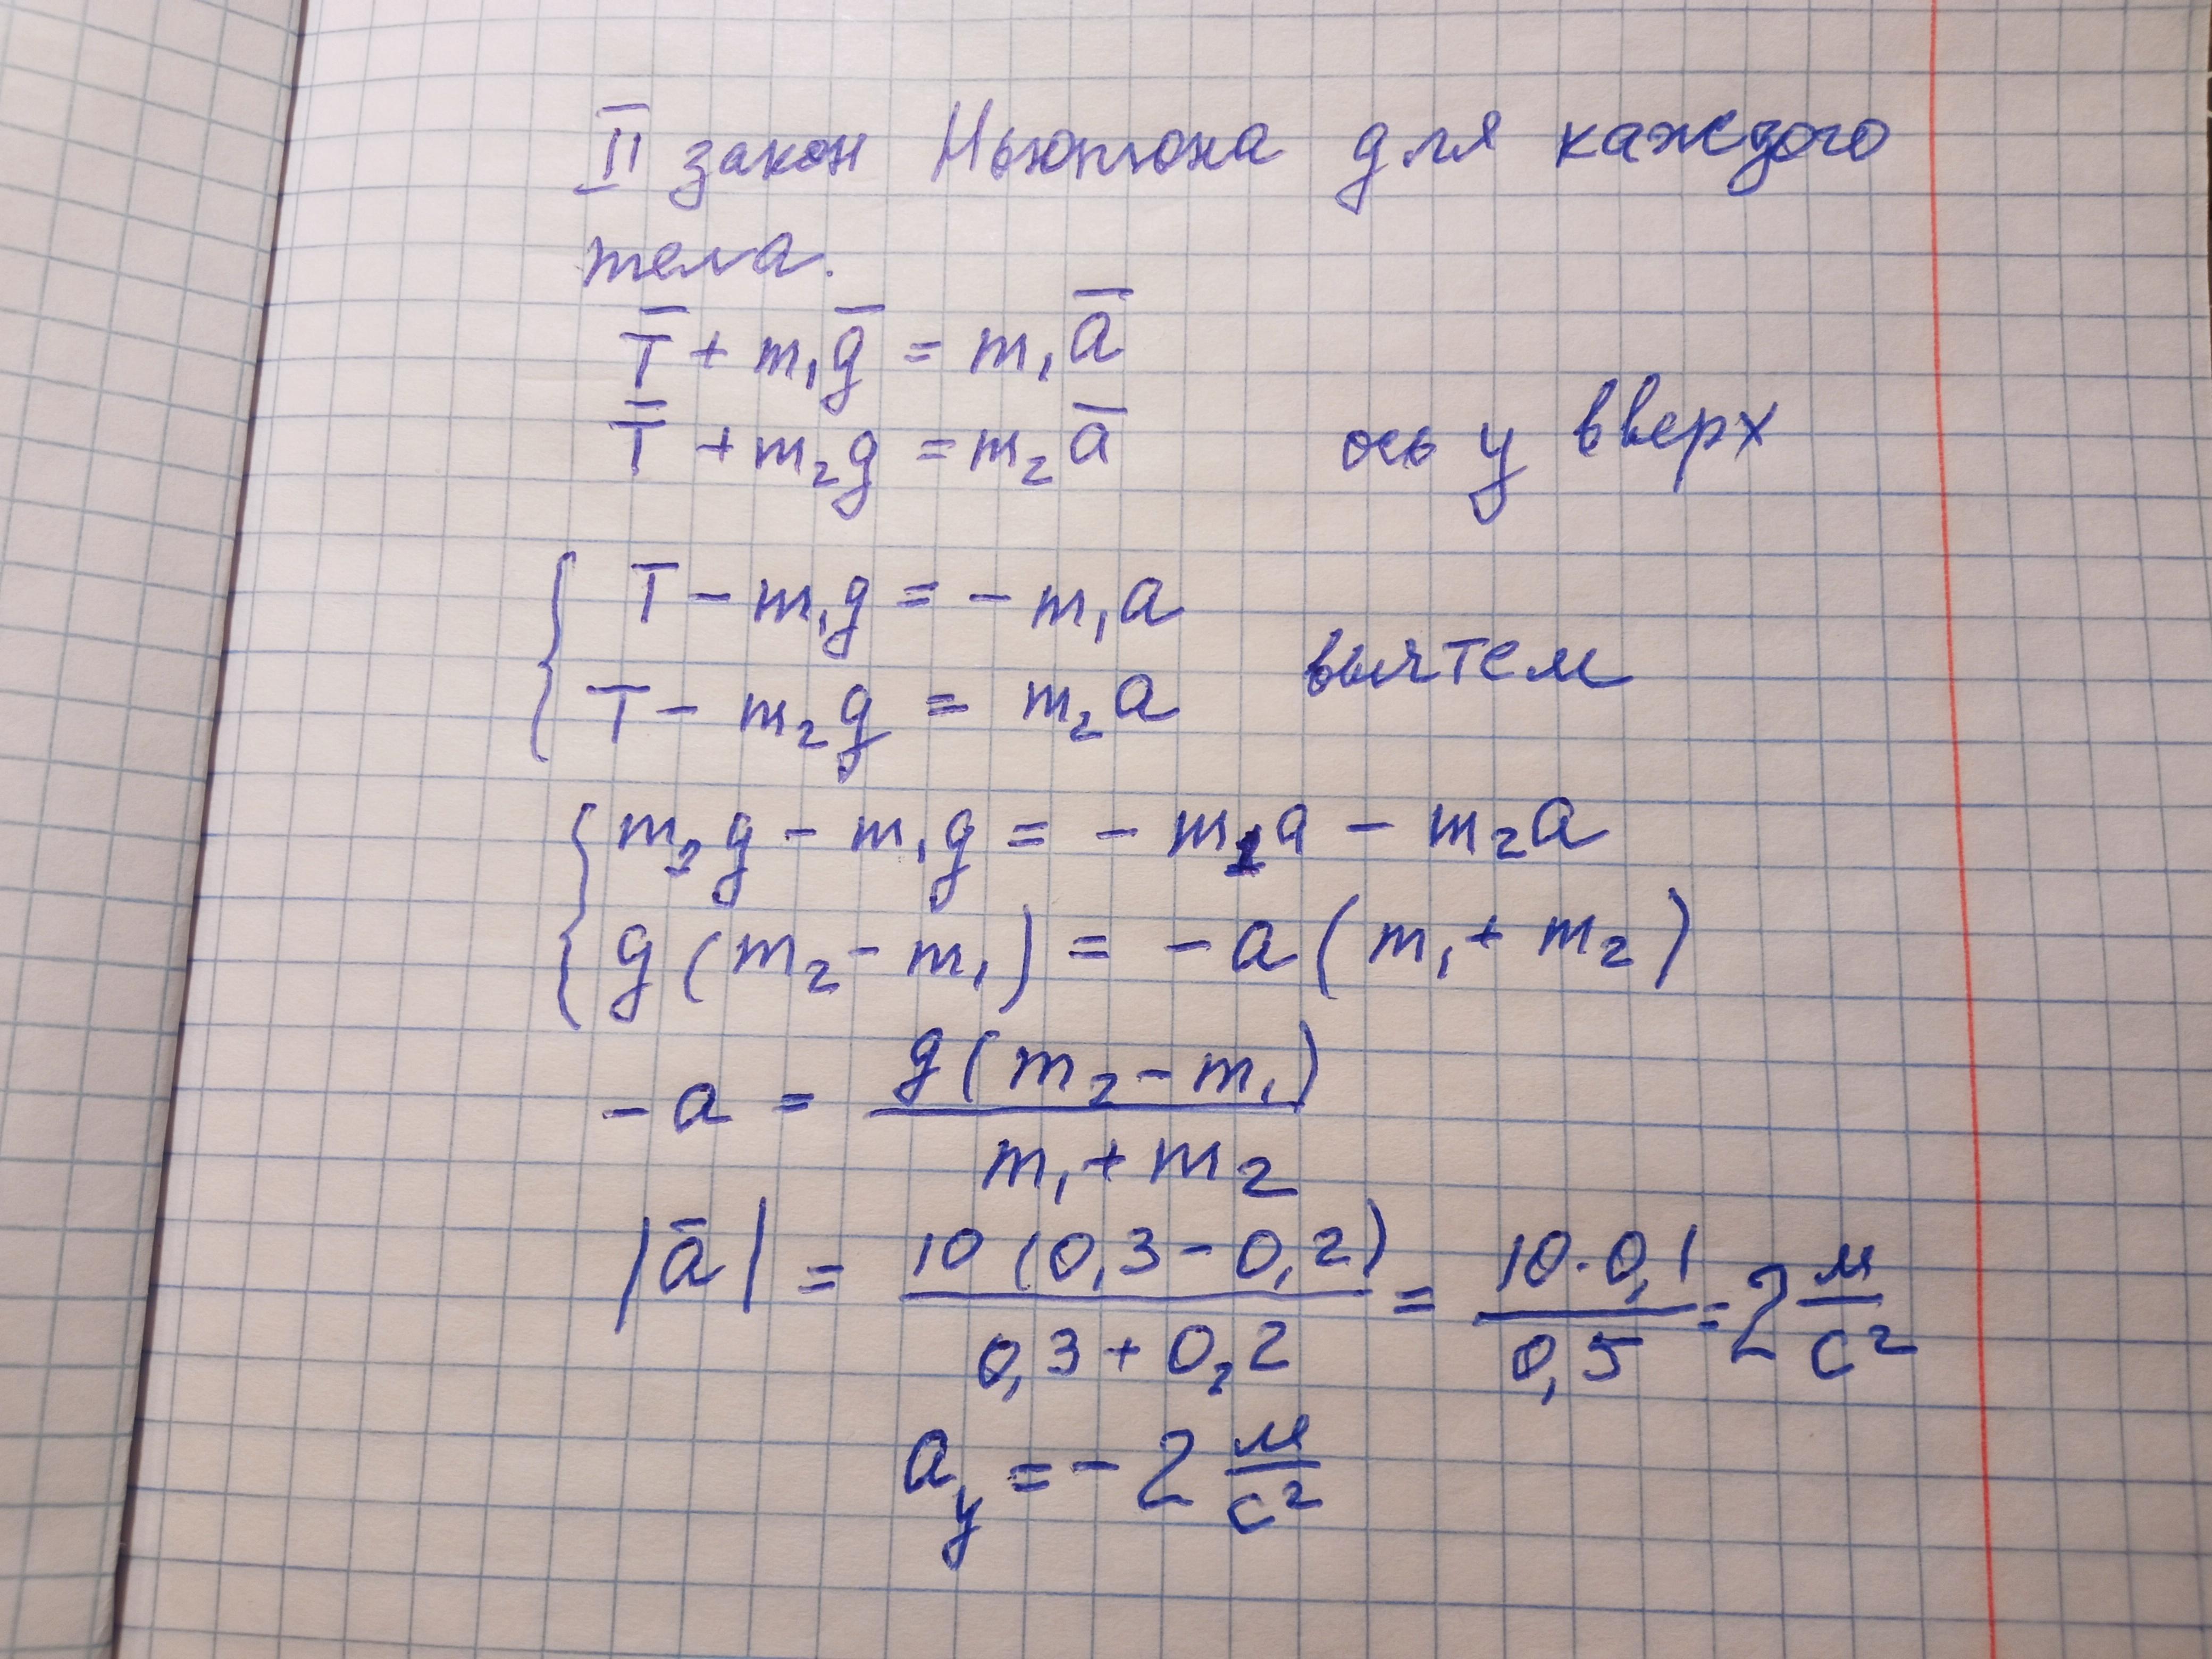 II закон Ньютона для каждого
тела.
T̅ + m₁g̅ = m₁a̅
T̅ + m₂g = m₂a̅ ось y вверх
T - m₁g = - m₁a
T - m₂g = m₂a вычтем
m₂g - m₁g = - m₁a - m₂a
g(m₂ - m₁) = - a(m₁ + m₂)
- a = g(m₂ - m₁) / (m₁ + m₂)
|a̅| = 10(0,3 - 0,2) / (0,3 + 0,2) = 10·0,1 / 0,5 = 2 м/с²
a_y = - 2 м/с²